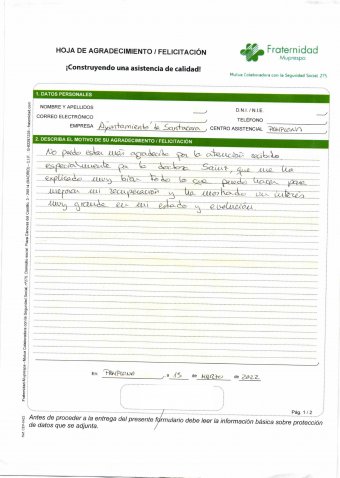 HOJA DE AGRADECIMIENTO / FELICITACIÓN
¡Construyendo una asistencia de calidad!
Fraternidad
Muprespa
Mutua Colaboradora con la Seguridad Social, 275
1. DATOS PERSONALES
NOMBRE Y APELLIDOS
D.N.I. / N.I.E.
CORREO ELECTRÓNICO
TELÉFONO
EMPRESA Ayuntamiento de Santacara CENTRO ASISTENCIAL PAMPLONA
2. DESCRIBA EL MOTIVO DE SU AGRADECIMIENTO / FELICITACIÓN
No puedo estar más agradecido por la atención recibida
especialmente por la doctora Saint, que me ha
explicado muy bien todo lo que puedo hacer para
mejorar mi recuperación y ha mostrado un interés
muy grande en mi estado y evolución.
En PAMPLONA, a 15 de MARZO de 2022
Pág. 1 / 2
Antes de proceder a la entrega del presente formulario debe leer la información básica sobre protección
de datos que se adjunta.